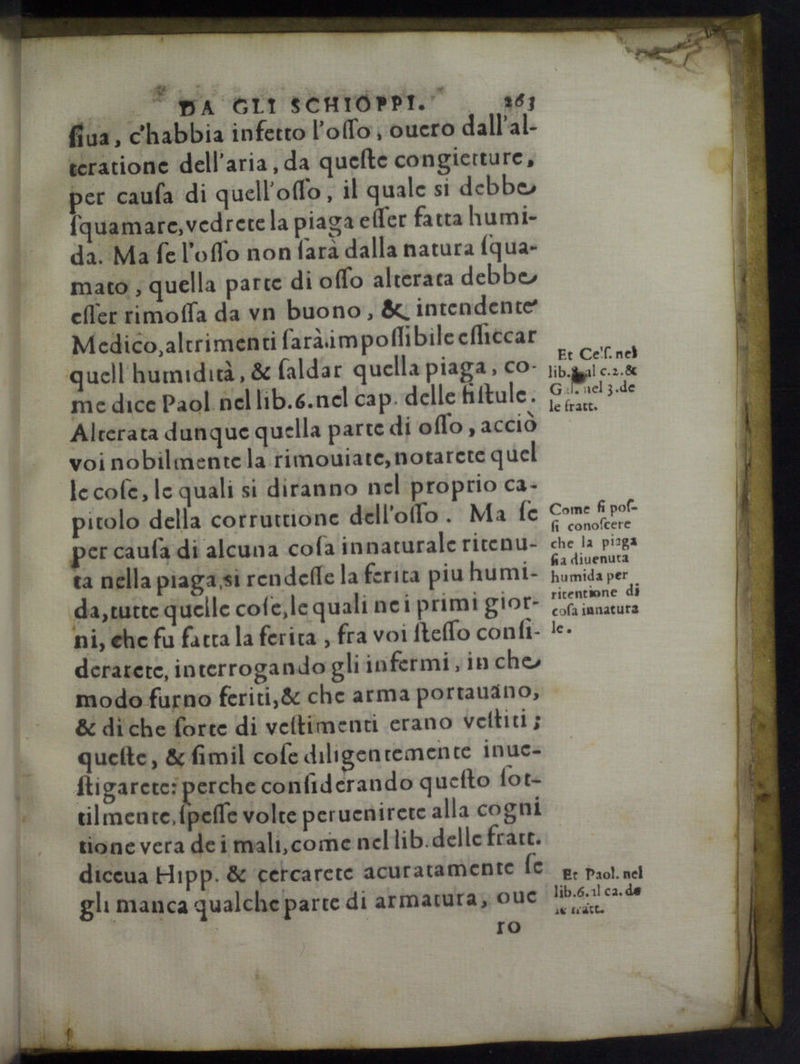 DA GLI SCHIOPPI. 263
ſiua, c'habbia infetto l'oſſo, ouero dall'al-
teratione dell'aria, da queſte congietture,
per cauſa di quell'oſſo, il quale si debbe
ſquamare, vedrete la piaga eſſer fatta humi-
da. Ma ſe l'oſſo non ſarà dalla natura ſqua-
mato, quella parte di oſſo alterata debbe
eſſer rimoſſa da vn buono, & intendente
Medico, altrimenti ſarà impoſſibile eſſiccar
quell'humidità, & ſaldar quella piaga, co-
me dice Paol nel lib.6. nel cap. delle fiſtule.
Alterata dunque quella parte di oſſo, acciò
voi nobilmente la rimouiate, notarete quel
le coſe, le quali si diranno nel proprio ca-
pitolo della corruttione dell'oſſo. Ma ſe
per cauſa di alcuna coſa innaturale ritenu-
ta nella piaga, si rendeſſe la ferita piu humi-
da, tutte quelle coſe, le quali ne i primi gior-
ni, che fu fatta la ferita, fra voi ſteſſo conſi-
derarete, interrogando gli infermi, in che
modo furno feriti, & che arma portauano,
& di che ſorte di veſtimenti erano veſtiti;
queſte, & ſimil coſe diligentemente inue-
ſtigarete: perche conſiderando queſto ſot-
tilmente, ſpeſſe volte peruenirete alla cogni
tione vera de i mali, come nel lib. delle fratt.
diceua Hipp. & cercarete acuratamente ſe
gli manca qualche parte di armatura, oue
ro
Et Celſ. nel
lib. al c.2. &
Gal. nel 3. de
le fratt.
Come ſi poſ-
ſi conoſcere
che la piaga
ſia diuenuta
humida per
ritentione di
coſa innatura
le.
Et Paol. nel
lib.6. al ca. de
le fratt.